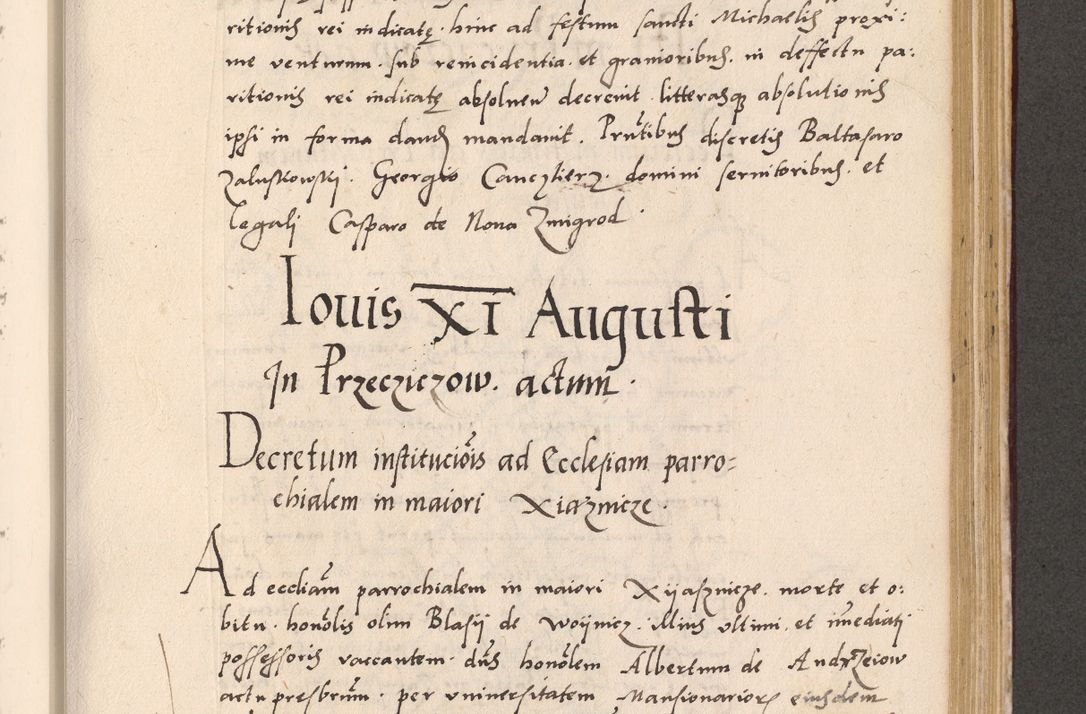 ritionis rei indicatę. hinc ad festum sancti Michaelis proxi:
me venturum. sub reincidentia. et gravioribus. in deffectu pa:
ritionis rei indicatę absoluen̄ decrevit. litterasqꝫ absolutionis
ipsi in forma dandꝭ mandauit. Prn̄tibus discretis Baltasaro
Zaluskowskj. Georgio Canczlierz. domini servitoribus. et
legalj Casparo de Nova Zmigrod.
Iouis XI Augusti
In Przecziczow. actum.
Decretum institucio͞is ad Ecclesiam parro=
chialem in maiori Xiaznicze.
Ad eccliam parrochialem in maiori Xijasznicze. morte et o:
bitu. hono͞lis olim Blasij de Woijnicz. illius vltimi. et im̄ediatj
possessoris vaccantem. dn̄s hono͞lem Albertum de Andrzeiow
actu presbrūm. per vniuersitatem Mansionarioꝝ eiusdem